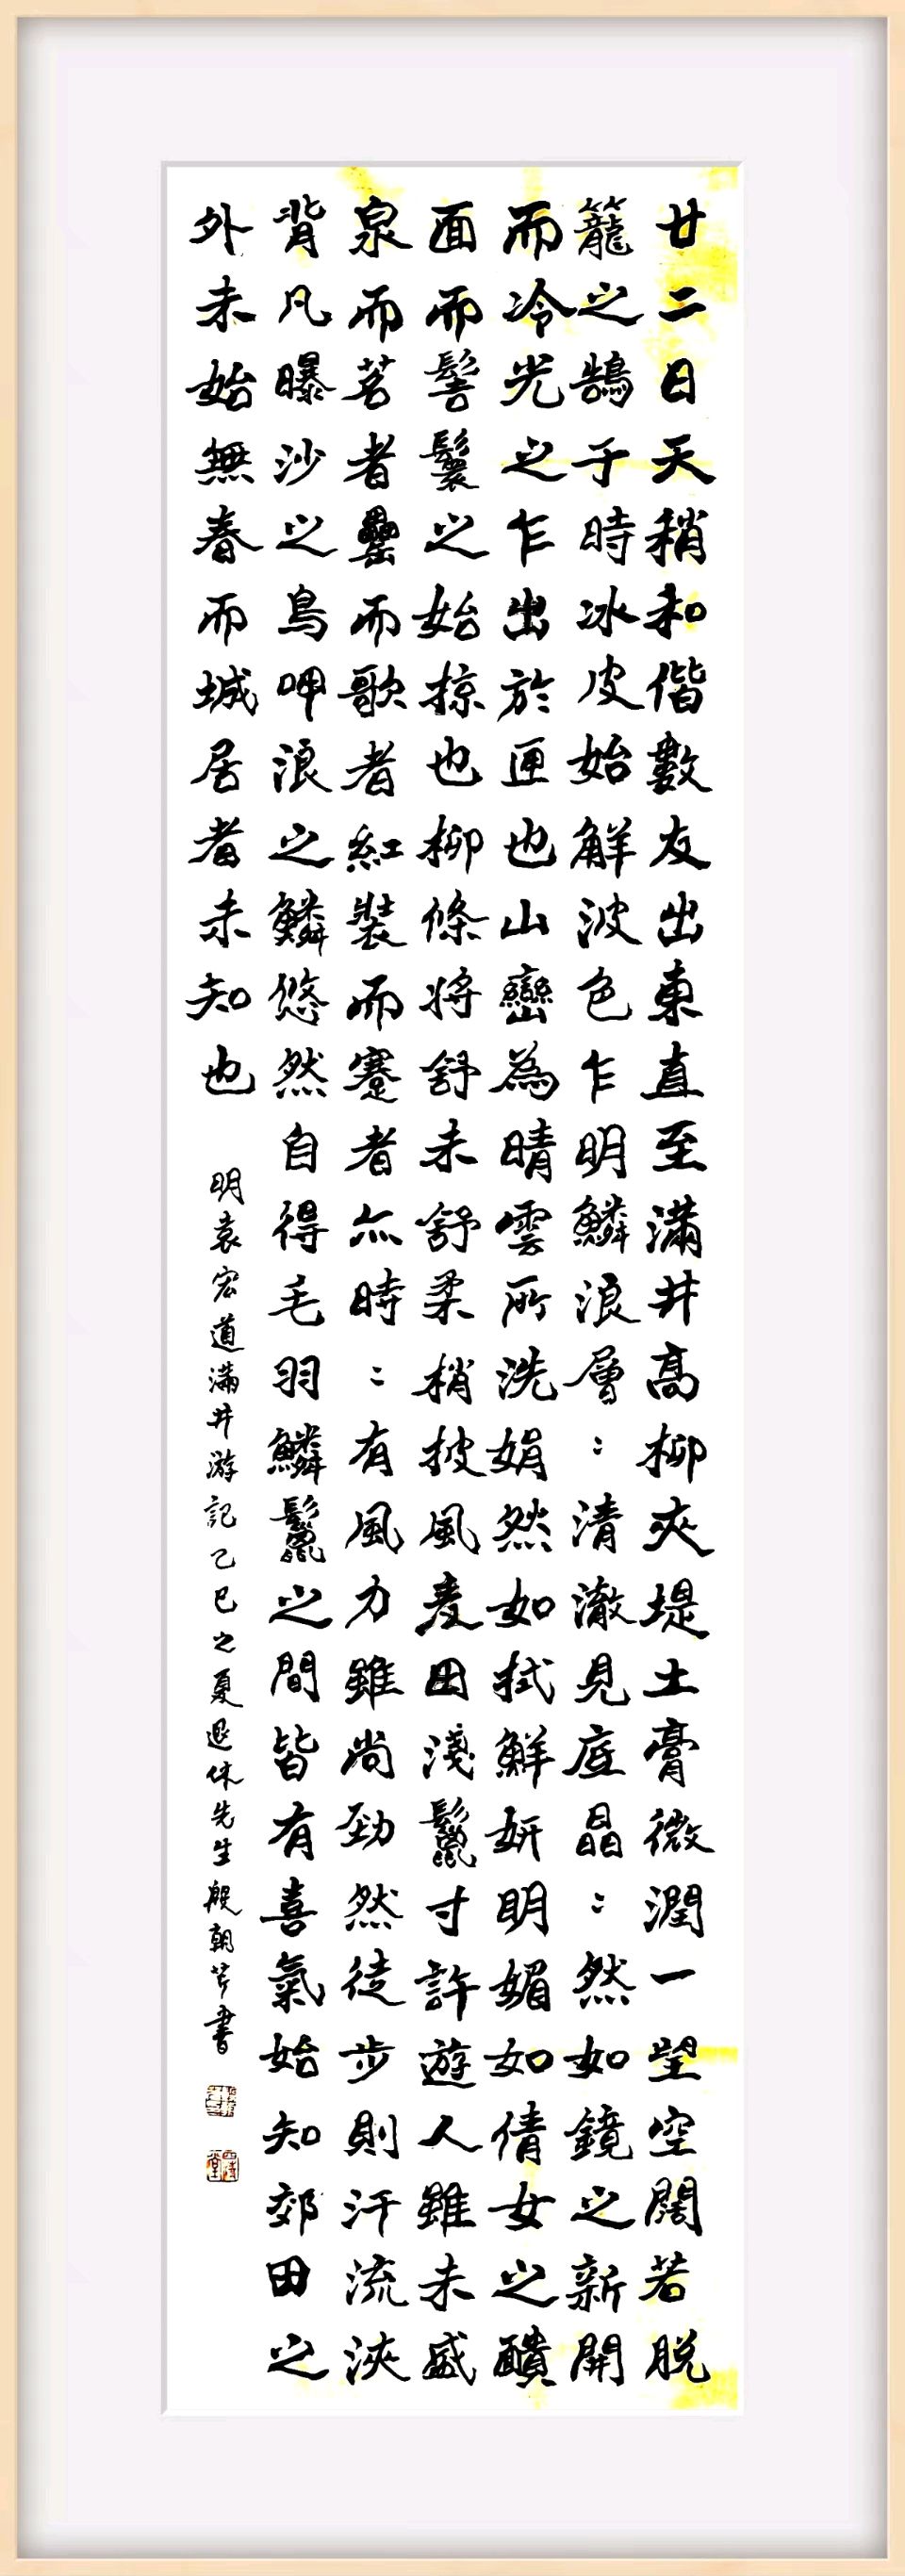 廿二日天稍和偕數友出東直至滿井高柳夾堤土膏微潤一望空闊若脫
籠之鵠于時冰皮始解波色乍明鱗浪層：清澈見底晶：然如鏡之新開
而冷光之乍出於匣也山巒為晴雲所洗娟然如拭鮮妍明媚如倩女之靧
面而髻鬟之始掠也柳條將舒未舒柔梢披風麦田淺鬣寸許遊人雖未盛
泉而茗者罍而歌者紅裝而蹇者亦時：有風力雖尚勁然徒步則汗流浹
背凡曝沙之鳥呷浪之鱗悠然自得毛羽鱗鬣之間皆有喜氣始知郊田之
外未始無春而城居者未知也
明袁宏道滿井游記乙巳之夏退休先生殷朝芹書